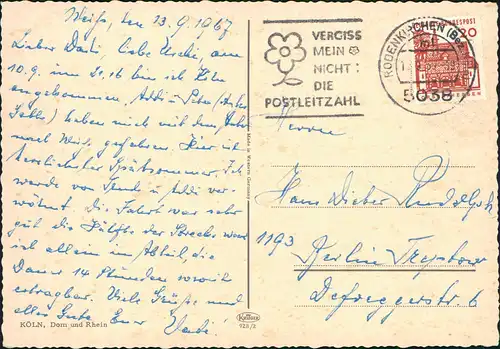 Weiß, den 13.9.1967
Lieber Dati, liebe Uschi, am
10.9. um 20.16 bin ich Köln
angekommen. Addi
haben mich mit dem Auto
nach Weiß gefahren. Hier ist
herrlicher Spätsommer. Ich
werde von und Addi ver-
wöhnt. Die Fahrt war sehr
gut die Hälfte der Strecke war
ich allein im Abteil, die
Dauer 14 Stunden somit
ertragbar. Viele Grüße und
alles Gute Euer
KÖLN, Dom und Rhein
VERGISS
MEIN
NICHT:
DIE
POSTLEITZAHL
RODENKIRCHEN (BZ
5038
BUNDESPOST
20
Herrn
Hans Dieter Rudolph
1193 Berlin Treptow
Defreggerstr. 6
Krüger
928/2